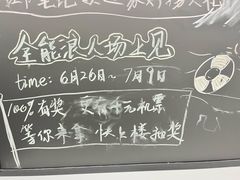 全能浪人场上见
time: 6月26日~7月9日
100%有奖 更有千元机票
等你来拿 快上楼抽奖